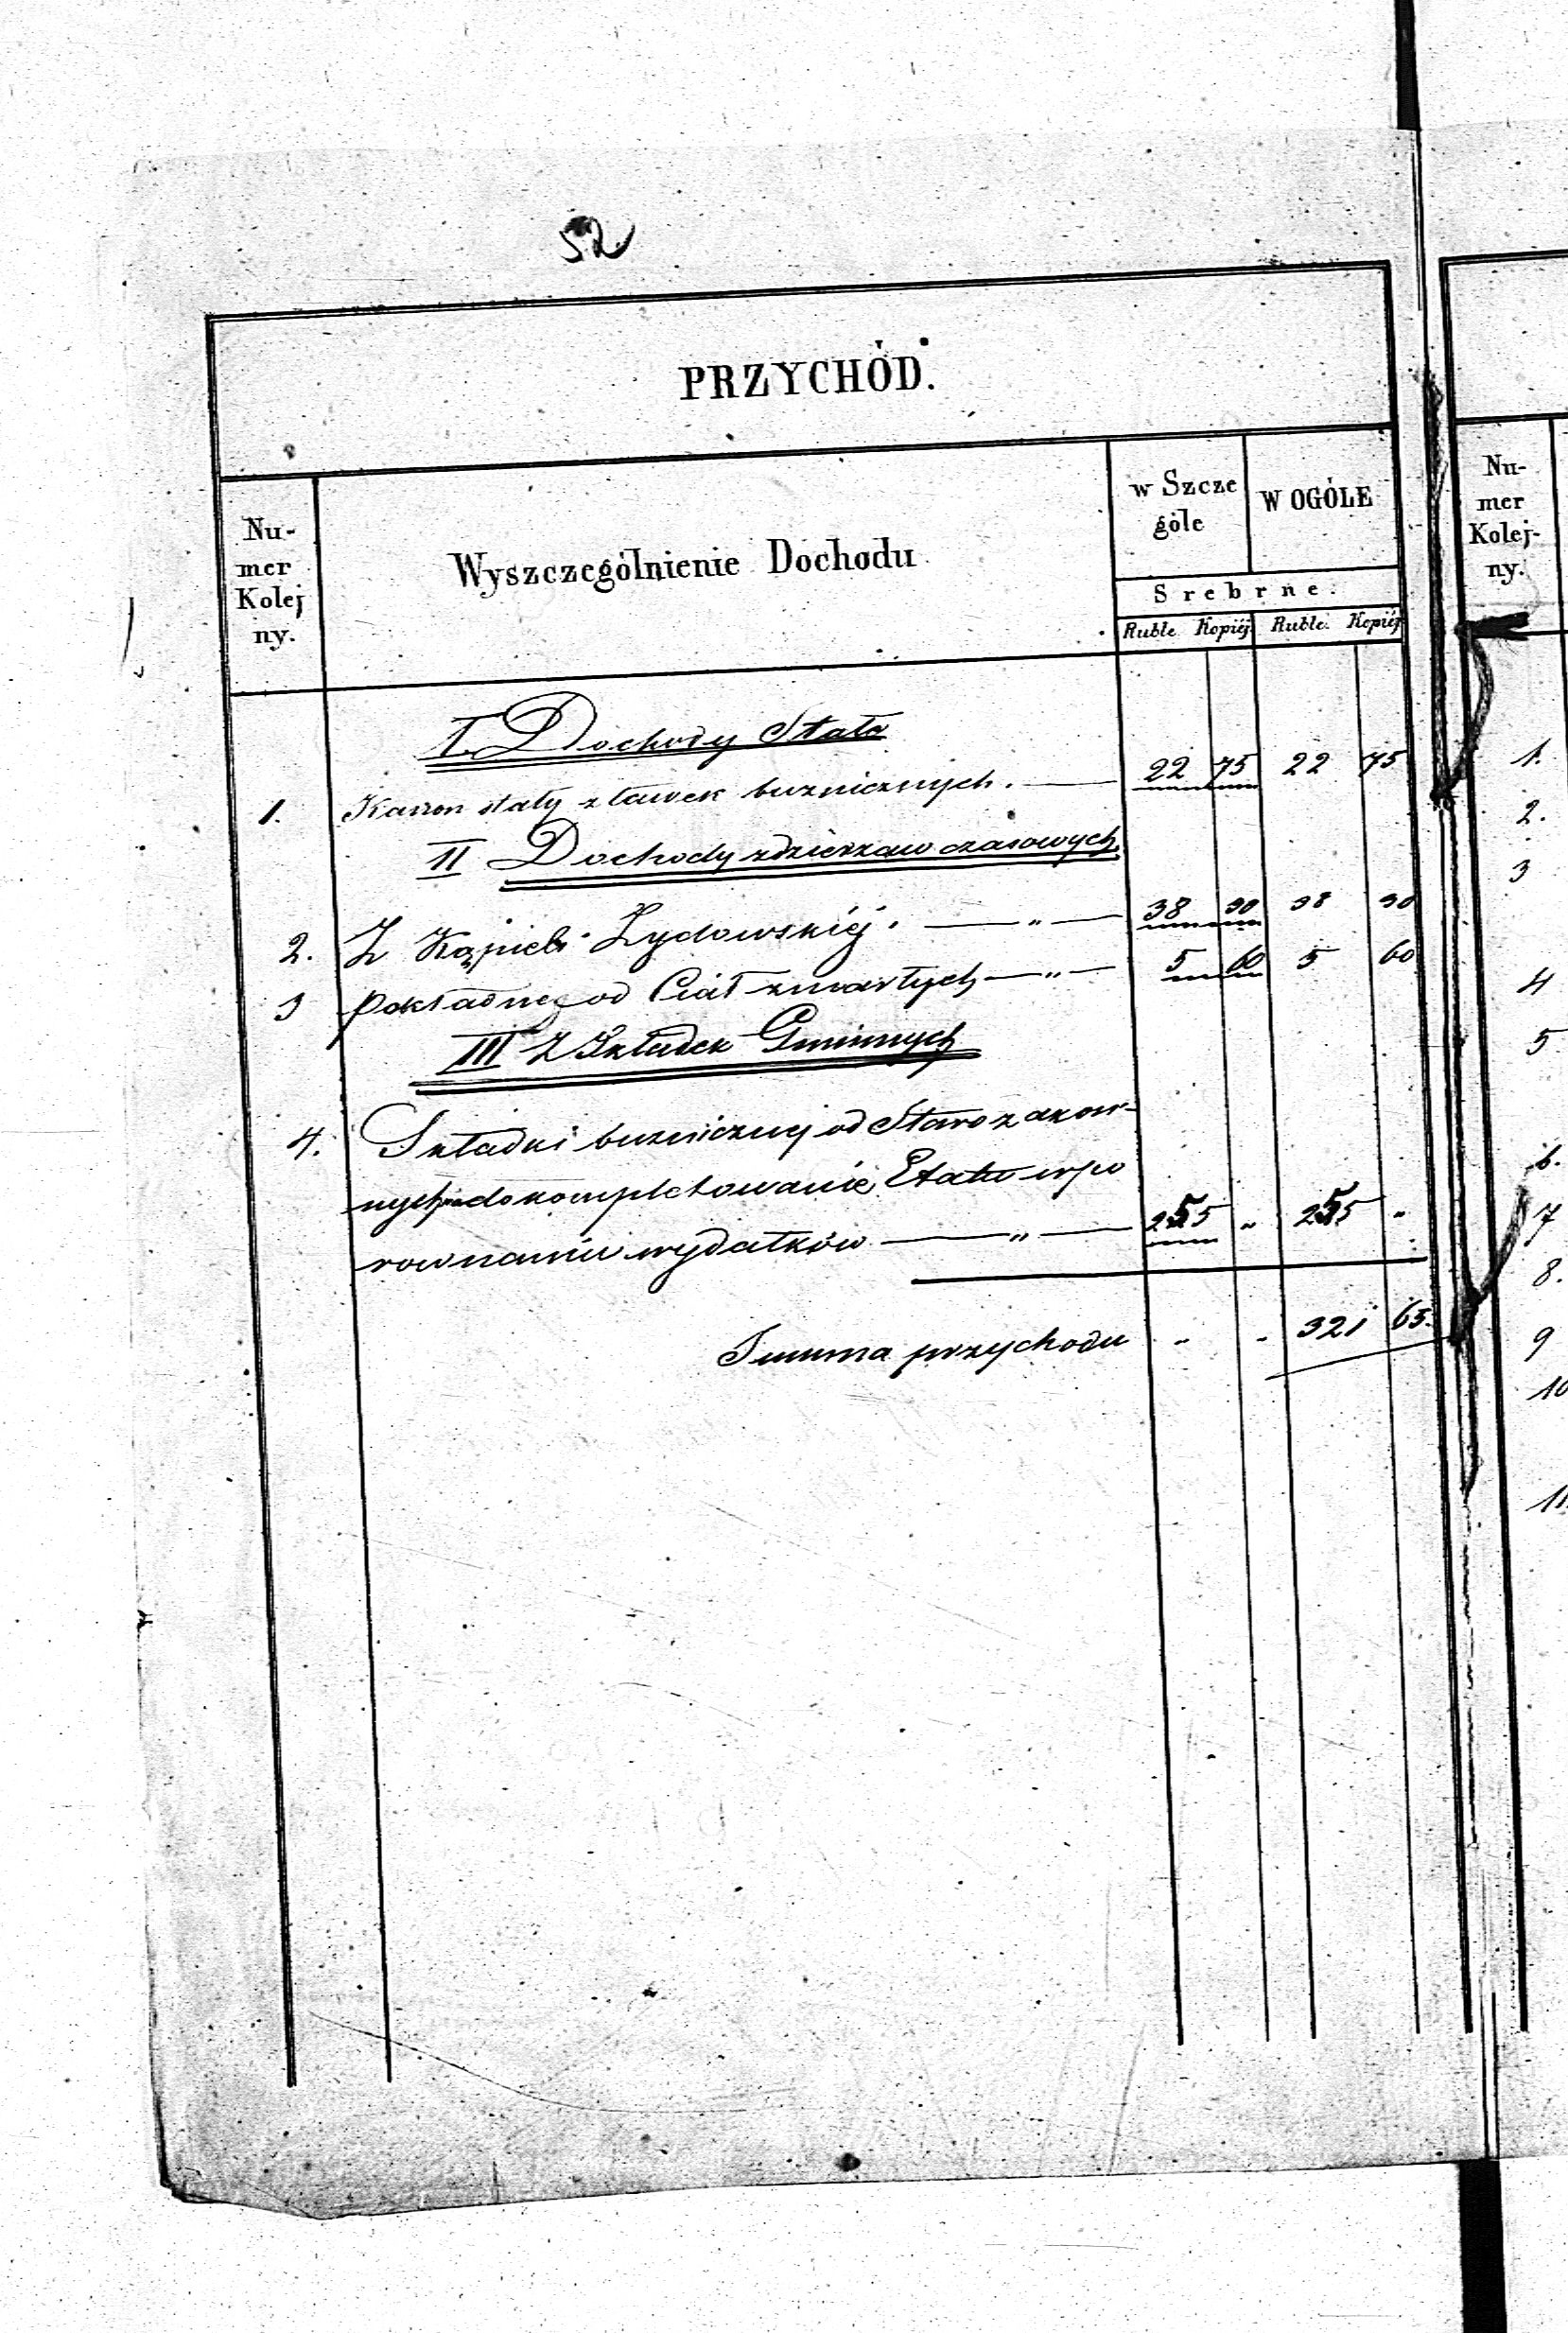 52
PRZYCHÓD.
Nu-
mer
Kolej
ny.
Wyszczególnienie Dochodu
w Szcze
góle
W OGÓLE
Srebrne.
Ruble Kopiéj. Ruble. Kopiéj
I. Dochody Stałe
1. Kanon stały z ławek bużnicznych. — 22 75 22 75
II Dochody z dzierzaw czasowych
2. Z Kąpieli Zydowskiéj. — „ — 38 30 38 30
3 Pokładne od Ciał zmarłych — „ — 5 60 5 60
III Z Składek Gminnych
4. Składki bużnicznej od Starozakon-
nych na dokompletowanie Etatu w po
rownaniu wydatków — „ — 255 „ 255 „
Summa przychodu - - 321 65.
Nu-
mer
Kolej-
ny.
1.
2.
3
4
5
6.
7
8.
9
10
11